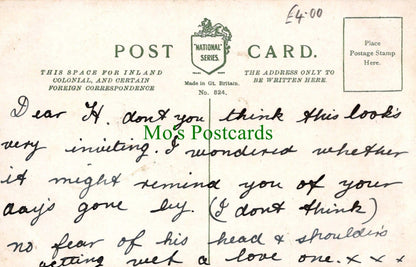 £4-00
POST CARD.
"NATIONAL"
SERIES.
Made in Gt. Britain.
No. 824.
THIS SPACE FOR INLAND
COLONIAL, AND CERTAIN
FOREIGN CORRESPONDENCE
THE ADDRESS ONLY TO
BE WRITTEN HERE.
Place
Postage Stamp
Here.
Dear H. dont you think this look's
very inviting. I wondered whether
it might remind you of your
day's gone by. (I dont think)
no fear of his head & shoulders
getting wet a love one. x x x
Mo's Postcards